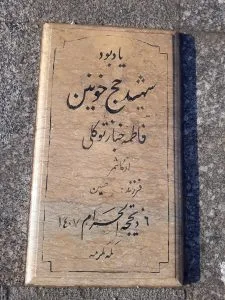 یادبود
شهید حج خونین
فاطمه خباز توکلی
از کاشمر
فرزند: حسین
۶ ذیحجه الحرام ۱۴۰۷
مکه مکرمه